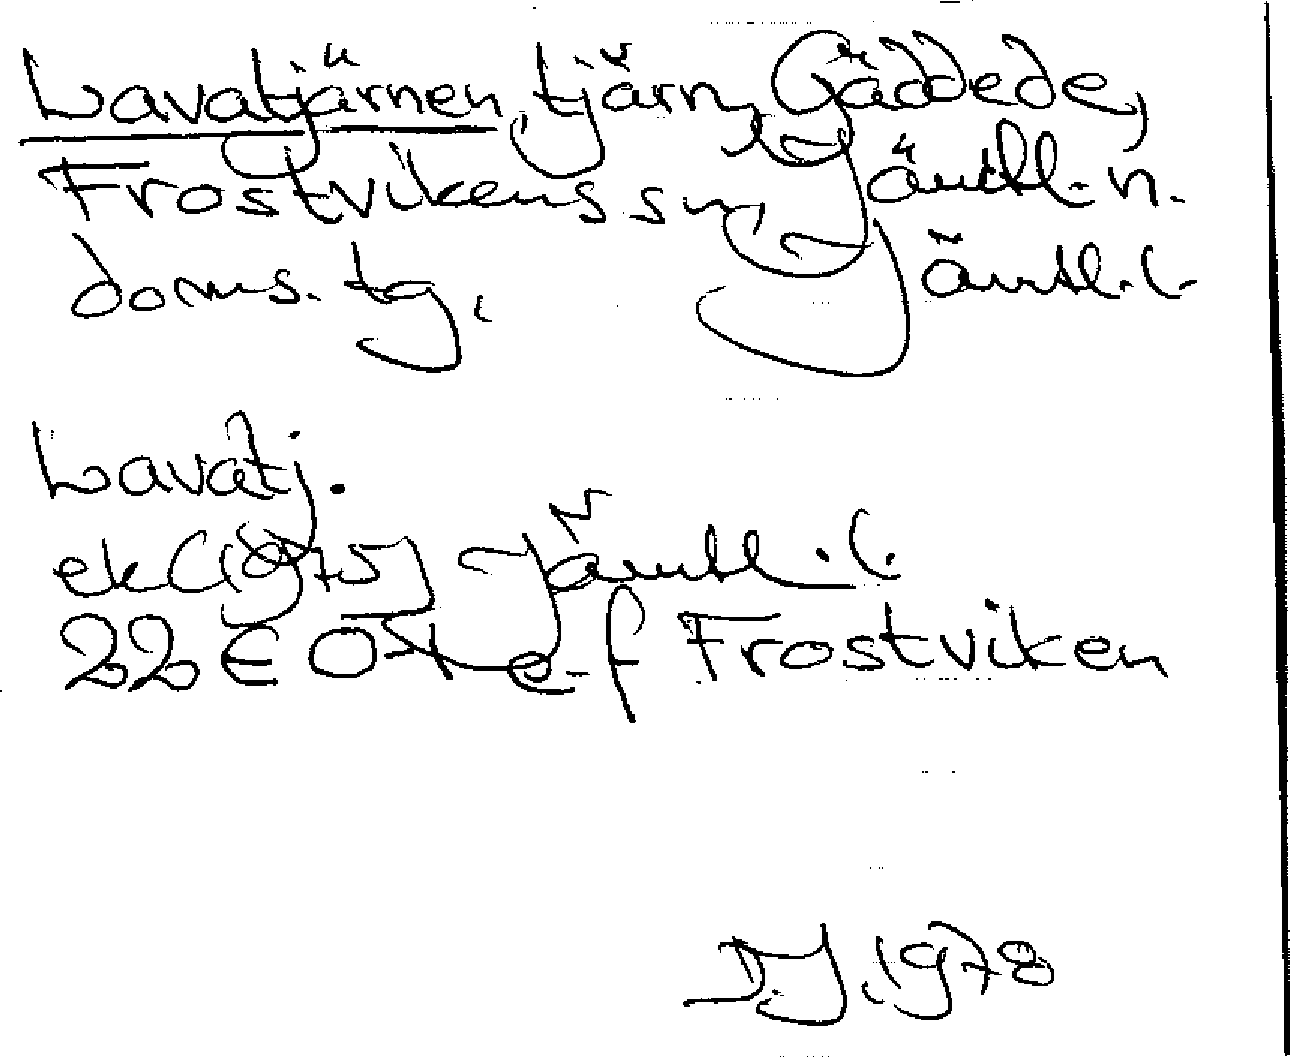 Lavatjärnen, tjärn, Gäddede,
Frostvikens sn, Jämtl. n.
doms. tg, Jämtl. l.
Lavatj.
ek (1975) Jämtl. l.
22 E f Frostviken
1978